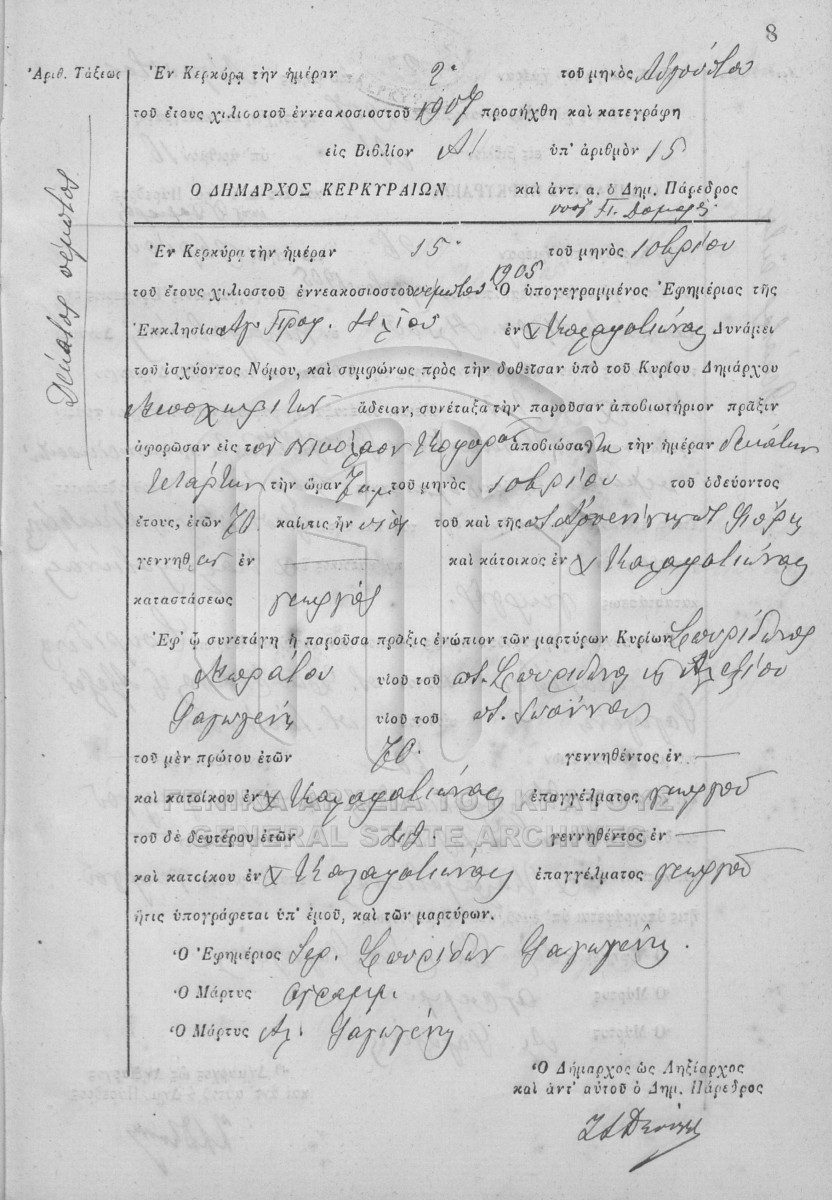 8
Ἀριθ. Τάξεως
Δέκατος πέμπτος
Ἐν Κερκύρᾳ τὴν ἡμέραν 2α τοῦ μηνὸς Αὐγούστου
τοῦ ἔτους χιλιοστοῦ ἐννεακοσιοστοῦ 1907 προσήχθη καὶ κατεγράφη
εἰς Βιβλίον Α! ὑπ' ἀριθμὸν 15
Ο ΔΗΜΑΡΧΟΣ ΚΕΡΚΥΡΑΙΩΝ καὶ ἀντ. α. ὁ Δημ. Πάρεδρος
Ἐν Κερκύρᾳ τὴν ἡμέραν 15 τοῦ μηνὸς 10βρίου
τοῦ ἔτους χιλιοστοῦ ἐννεακοσιοστοῦ πέμπτου 1905 Ὁ ὑπογεγραμμένος Ἐφημέριος τῆς
Ἐκκλησίας Ἁγ. Προφ. Ηλιού ἐν Χ Καλαφατιώνας Δυνάμει
τοῦ ἰσχύοντος Νόμου, καὶ συμφώνως πρὸς τὴν δοθεῖσαν ὑπὸ τοῦ Κυρίου Δημάρχου
ἄδειαν, συνέταξα τὴν παροῦσαν ἀποβιωτήριον πρᾶξιν
ἀφορῶσαν εἰς τὸν Νικόλαον ἀποβιώσαντα τὴν ἡμέραν δεκάτην
τετάρτην τὴν ὥραν 7 π.μ. τοῦ μηνὸς 10βρίου τοῦ ὁδεύοντος
ἔτους, ἐτῶν 70 καὶ τις ἦν υἱὸς τοῦ καὶ τῆς
γεννηθ ἐν — καὶ κάτοικος ἐν Χ Καλαφατιώνας
καταστάσεως γεωργός
Ἐφ' ᾧ συνετάγη ἡ παροῦσα πρᾶξις ἐνώπιον τῶν μαρτύρων Κυρίων Σπυρίδωνος
υἱοῦ τοῦ π. Σπυρίδωνος κ Ἀλεξίου
Φαγωγένη υἱοῦ τοῦ π. Ἰωάννου
τοῦ μὲν πρώτου ἐτῶν 70 γεννηθέντος ἐν —
καὶ κατοίκου ἐν Χ Καλαφατιώνας ἐπαγγέλματος γεωργοῦ
ΓΕΝΙΚΑ ΑΡΧΕΙΑ ΤΟΥ ΚΡΑΤΟΥΣ
τοῦ δὲ δευτέρου ἐτῶν γεννηθέντος ἐν —
GENERAL STATE ARCHIVES
καὶ κατοίκου ἐν Χ Καλαφατιώνας ἐπαγγέλματος γεωργοῦ
ἥτις ὑπογράφεται ὑπ' ἐμοῦ, καὶ τῶν μαρτύρων.
Ὁ Ἐφημέριος Ἱερ. Σπυρίδων Φαγωγένης
Ὁ Μάρτυς ἀγράμμ.
Ὁ Μάρτυς Ἀλ. Φαγωγένης
Ὁ Δήμαρχος ὡς Ληξίαρχος
καὶ ἀντ' αὐτοῦ ὁ Δημ. Πάρεδρος